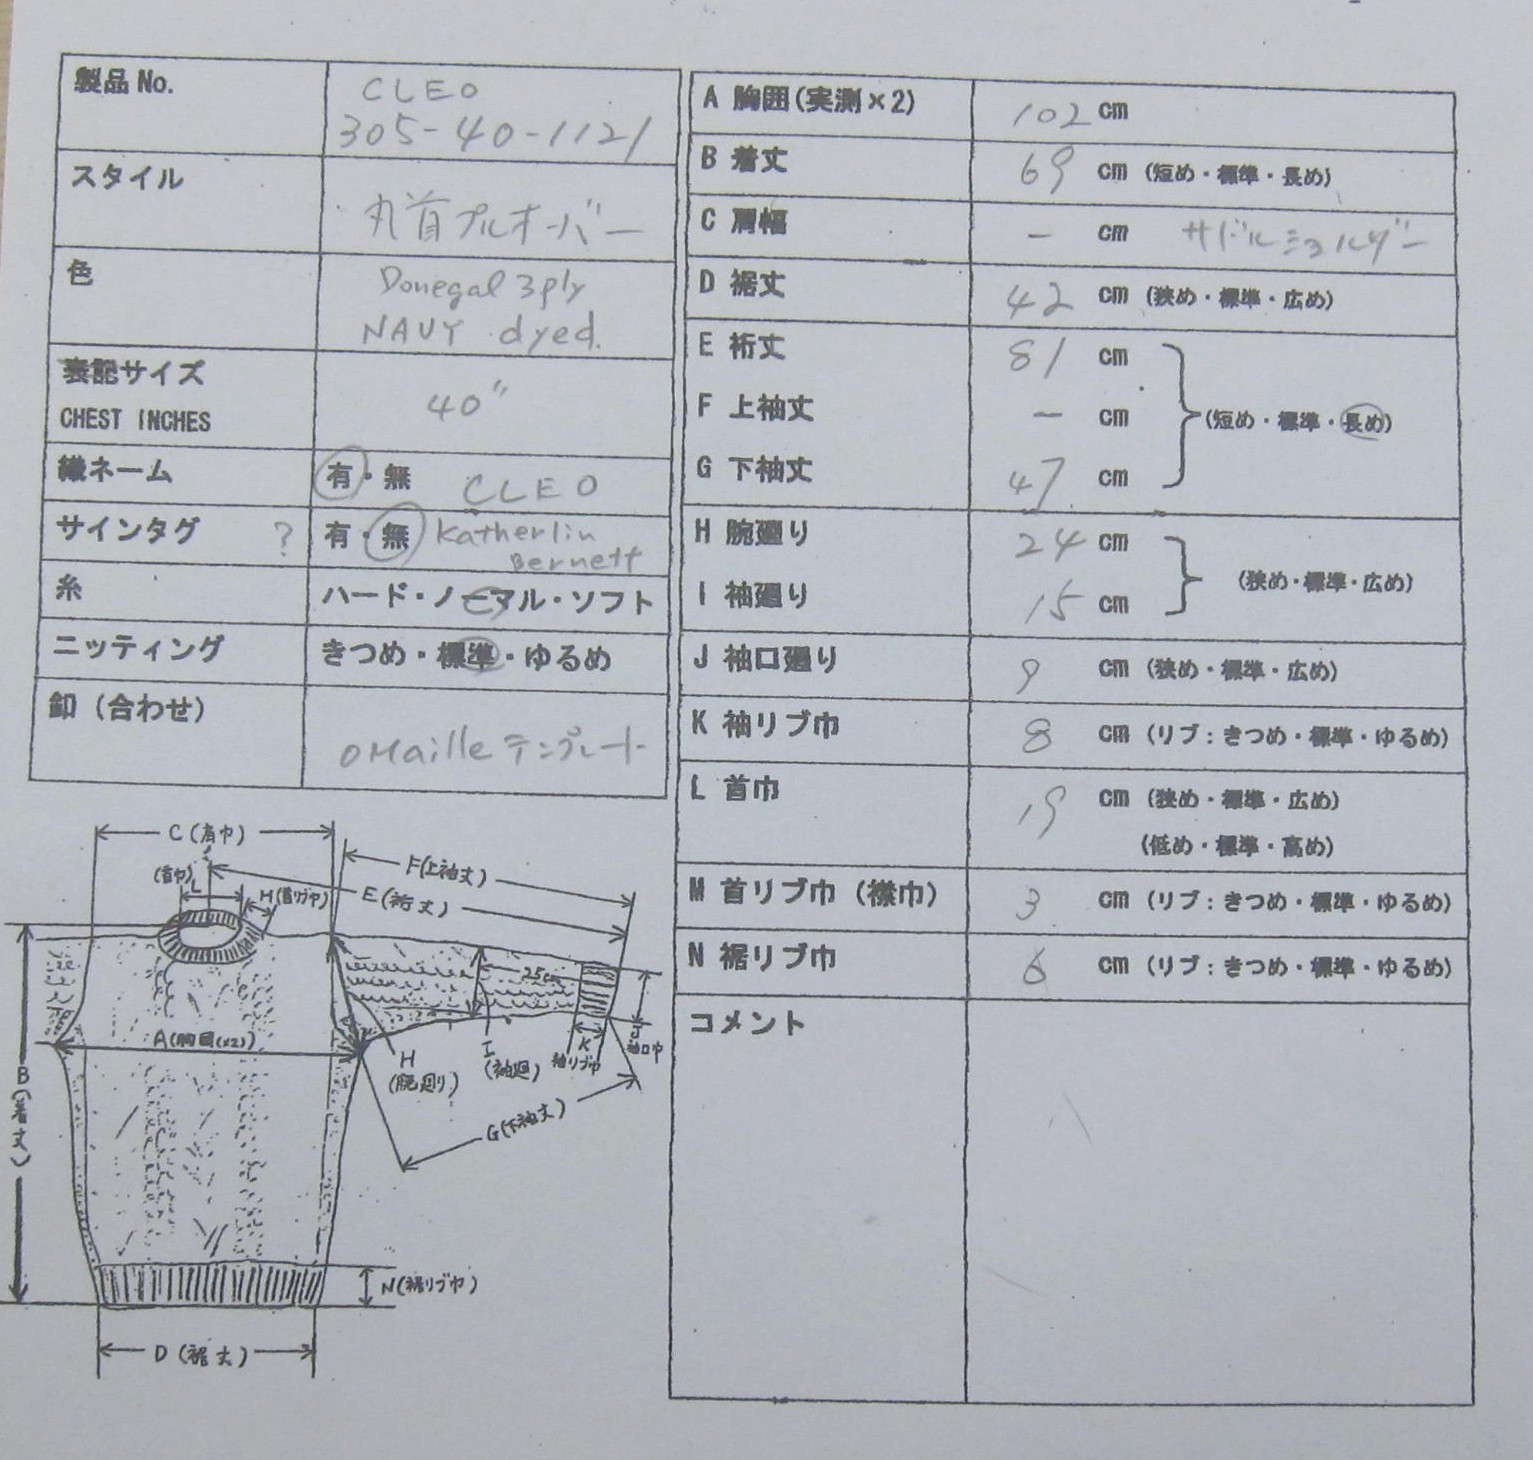 製品No.
CLEO
305-40-1121
スタイル
丸首プルオーバー
色
Donegal 3ply
NAVY dyed.
表記サイズ
CHEST INCHES
40"
織ネーム
有・無 CLEO
サインタグ ?
有・無 Katherlin
Bernett
糸
ハード・ノーマル・ソフト
ニッティング
きつめ・標準・ゆるめ
釦（合わせ）
OMailleテンプレート
A 胸囲(実測×2) 102 cm
B 着丈 69 cm (短め・標準・長め)
C 肩幅 - cm サドルショルダー
D 裾丈 42 cm (狭め・標準・広め)
E 裄丈 81 cm
F 上袖丈 - cm (短め・標準・長め)
G 下袖丈 47 cm
H 腕廻り 24 cm
(狭め・標準・広め)
I 袖廻り 15 cm
J 袖口廻り 9 cm (狭め・標準・広め)
K 袖リブ巾 8 cm (リブ：きつめ・標準・ゆるめ)
L 首巾 19 cm (狭め・標準・広め)
(低め・標準・高め)
M 首リブ巾（襟巾） 3 cm (リブ：きつめ・標準・ゆるめ)
N 裾リブ巾 6 cm (リブ：きつめ・標準・ゆるめ)
コメント
C(肩巾)
F(上袖丈)
(首巾)
L
H(首リブ巾)
E(裄丈)
25cm
A(胸囲(×2))
B(着丈)
H
(腕廻り)
I
(袖廻)
K
袖リブ巾
J
袖口巾
G(下袖丈)
N(裾リブ巾)
D(裾丈)